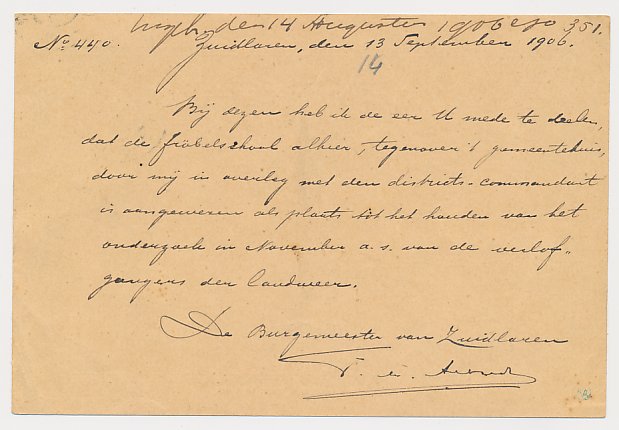 Ingek. den 14 Augustus 1906 No 351.
No. 440. Zuidlaren, den 13 September 1906.
14
Bij dezen heb ik de eer U mede te deelen,
dat de fröbelschool alhier, tegenover 't gemeentehuis,
door mij in overleg met den districts-commandant
is aangewezen als plaats tot het houden van het
onderzoek in November a.s. van de verlof-
gangers der landweer.
De Burgemeester van Zuidlaren